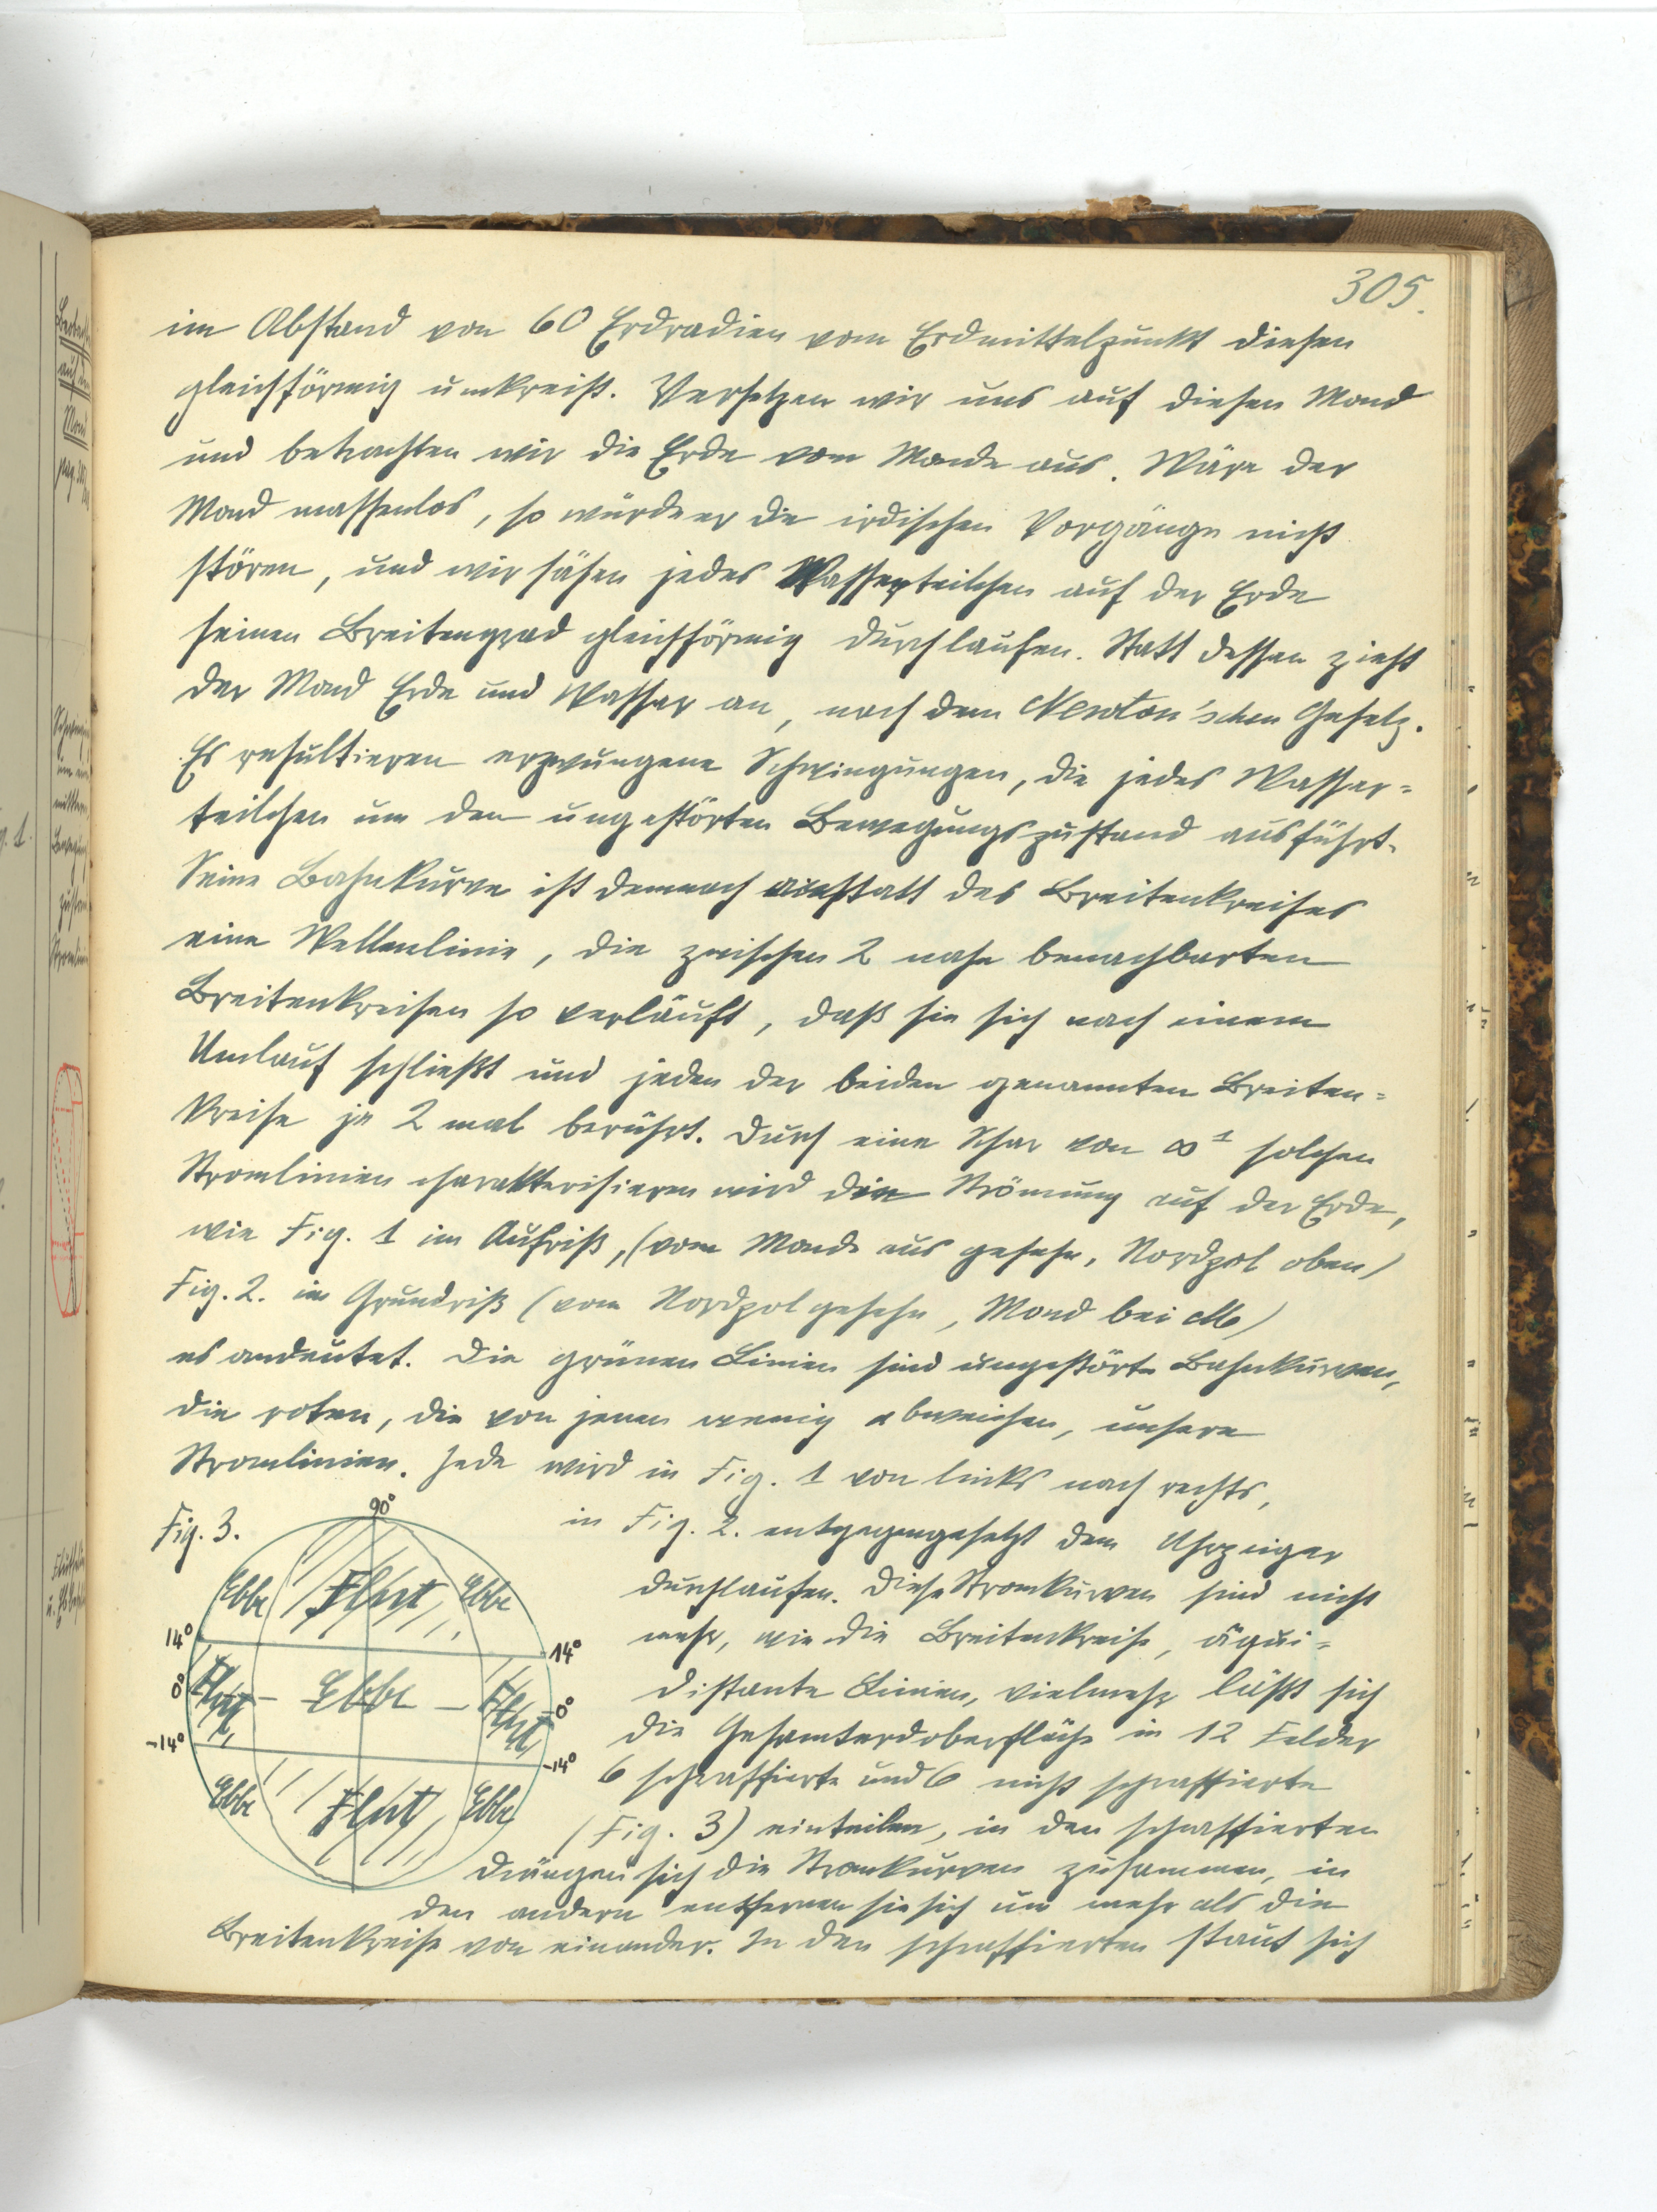 305.
im Abstand von 60 Erdradien vom Erdmittelpunkt diesen
gleichförmig umkreist. Versetzen wir uns auf diesen Mond
und betrachten wir die Erde vom Monde aus. Wäre der
Mond massenlos, so würde er die irdischen Vorgänge nicht
stören, und wir sähen jedes Wasserteilchen auf der Erde
seinen Breitengrad gleichförmig durchlaufen. Statt dessen zieht
der Mond Erde und Wasser an, nach dem Newton'schen Gesetz.
Es resultieren erzwungene Schwingungen, die jedes Wasser=
teilchen um den ungestörten Bewegungszustand ausführt.
Seine Bahnkurve ist demnach anstatt des Breitenkreises
eine Wellenlinie, die zwischen 2 nahe benachbarten
Breitenkreisen so verläuft, daß sie sich nach einem
Umlauf schließt und jeden der beiden genannten Breiten=
kreise je 2 mal berührt. Durch eine Schar von ∞¹ solchen
Stromlinien charakterisieren wird die Strömung auf der Erde,
wie Fig. 1 im Aufriß, (vom Monde aus gesehn, Nordpol oben)
Fig. 2. im Grundriß (vom Nordpol gesehn, Mond bei M)
es andeutet. Die grünen Linien sind ungestörte Bahnkurven,
die roten, die von jenen wenig abweichen, unsere
Stromlinien. Jede wird in Fig. 1 von links nach rechts,
in Fig. 2. entgegengesetzt dem Uhrzeiger
durchlaufen. Diese Stromkurven sind nicht
mehr, wie die Breitenkreise, äqui=
distante Linien, vielmehr läßt sich
die Gesamterdoberfläche in 12 Felder
6 schraffierte und 6 nicht schraffierte
(Fig. 3) einteilen, in den schraffierten
drängen sich die Stromkurven zusammen, in
den andern entfernen sie sich um mehr als die
Breitenkreise von einander. In den schraffierten staut sich
Fig. 3.
90°
Ebbe Flut Ebbe
14° 14°
0° Flut – Ebbe – Flut 0°
-14° -14°
Ebbe Flut Ebbe